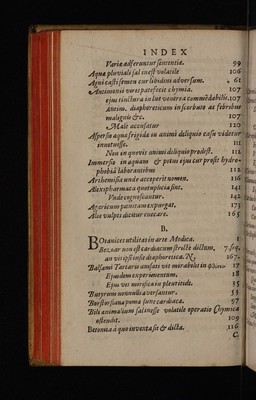 INDEX
Variæ adferuntur sententiæ. 99
Aquæ pluviali sal inest volatile 106
Agni casti semen cur libidini adversum. 61
Antimonii vires patefecit chymia. 107
ejus tinctura in lue venerea commēdabilis. 107
Antim. diaphoreticum in scorbuto ac febribus
malignis &c. 107
Malè accusatur 110
Aspersio aqua frigida in animi deliquio casu videtur
innotuisse. 111
Non in quovis animi deliquio prodest. 111
Immersio in aquam & potus ejus cur prosit hydro-
phobiâ laborantibus 112
Arthemisia unde acceperit nomen. 116
Alexipharmaca quotuplicia sint. 141
Unde cognoscantur. 142
Agaricum panitam expurgat. 171
Aloe vulpis dicitur enecare. 165
B.
Botanices utilitas in arte Medica. 1
Bezoar non est cardiacum strictè dictum, 7. seq.
an vi ipsi insit diaphoretica. N. 167.
Balsami Tartari unius vis mirabilis in 17
Ejusdem experimentum. 18
Ejus vis mirifica in pleuritide. 35
Butyrum nonnullis aversantur. 58
Borstorfiana poma sunt cardiaca. 97
Bili animalium sal inesse volatile operatio Chymica
ostendit. 109
Betonica à quo inventa sit & dicta. 116
C.